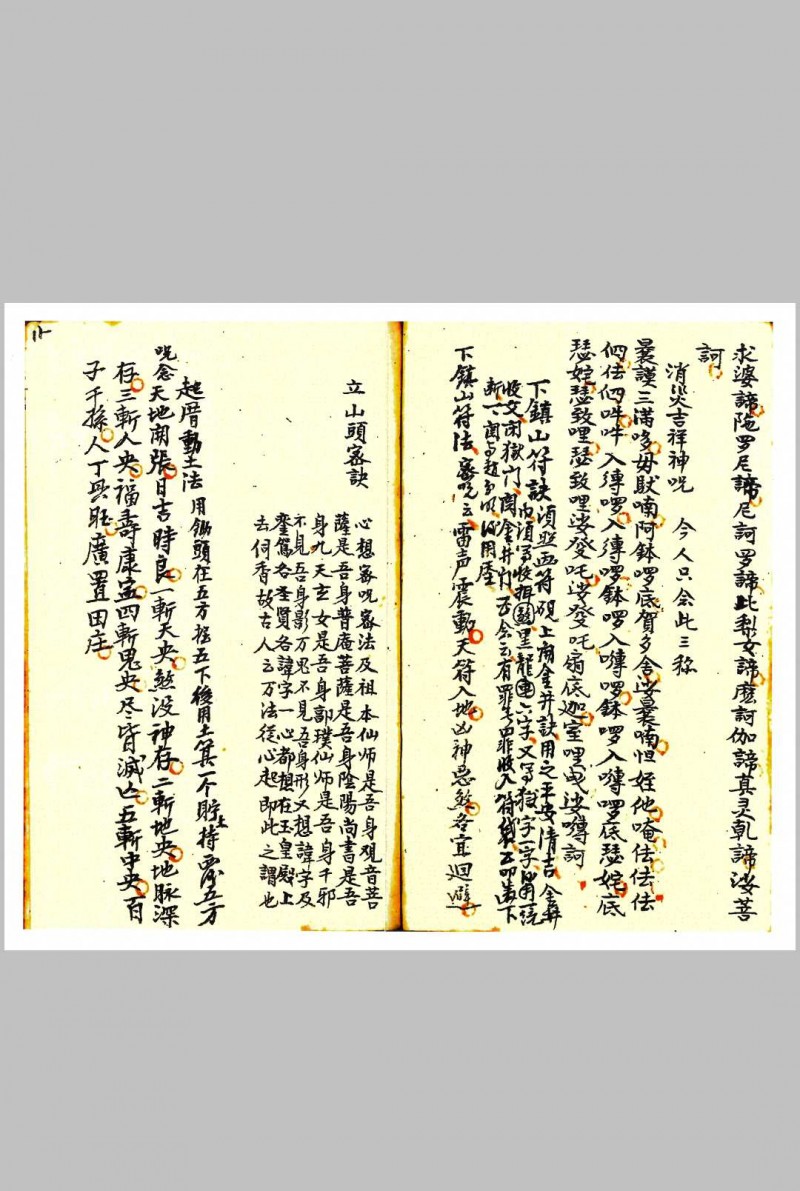 求婆諦陁罗尼諦尼訶罗諦比梨女諦麽訶伽諦真灵乹諦娑菩
訶
消災吉祥神呪　今人只念此三称
曩謨三滿哆毋馱喃阿鉢啰底賀多舍娑曩喃怛姪他唵佉佉佉
佀佉佀吽吽入嚩啰入嚩啰鉢啰入嚩啰鉢啰入嚩啰底瑟姹底
瑟姹瑟致哩瑟致哩娑癹吒娑癹吒扇底迦室哩曳娑嚩訶
下鎮山符訣須照画符硯上開金井訣用之平安清吉金井
收文閉獄門
下鎮山符法密呪云雷声震動天符入地凶神惡煞各宜迴避
立山頭密訣
心想密呪密法及祖本仙师是吾身观音菩
薩是吾身普庵菩薩是吾身陰陽尚書是吾
身九天玄女是吾身郭璞仙师是吾身千邪
不見吾身影万鬼不見吾身形又想諱字及
鑾駕各圣賢各諱字一心都想在玉皇殿上
去伺香故古人云万法從心起即此之謂也
起厝動土法　用鋤頭在五方挖五下後用土箕一个貯土持五方
呪念天地開張日吉時良一斬天央煞没神存二斬地央地脉深
存三斬人央福壽康寍四斬鬼央尽皆滅亾五斬中央百
子千孫人丁興旺廣置田庄